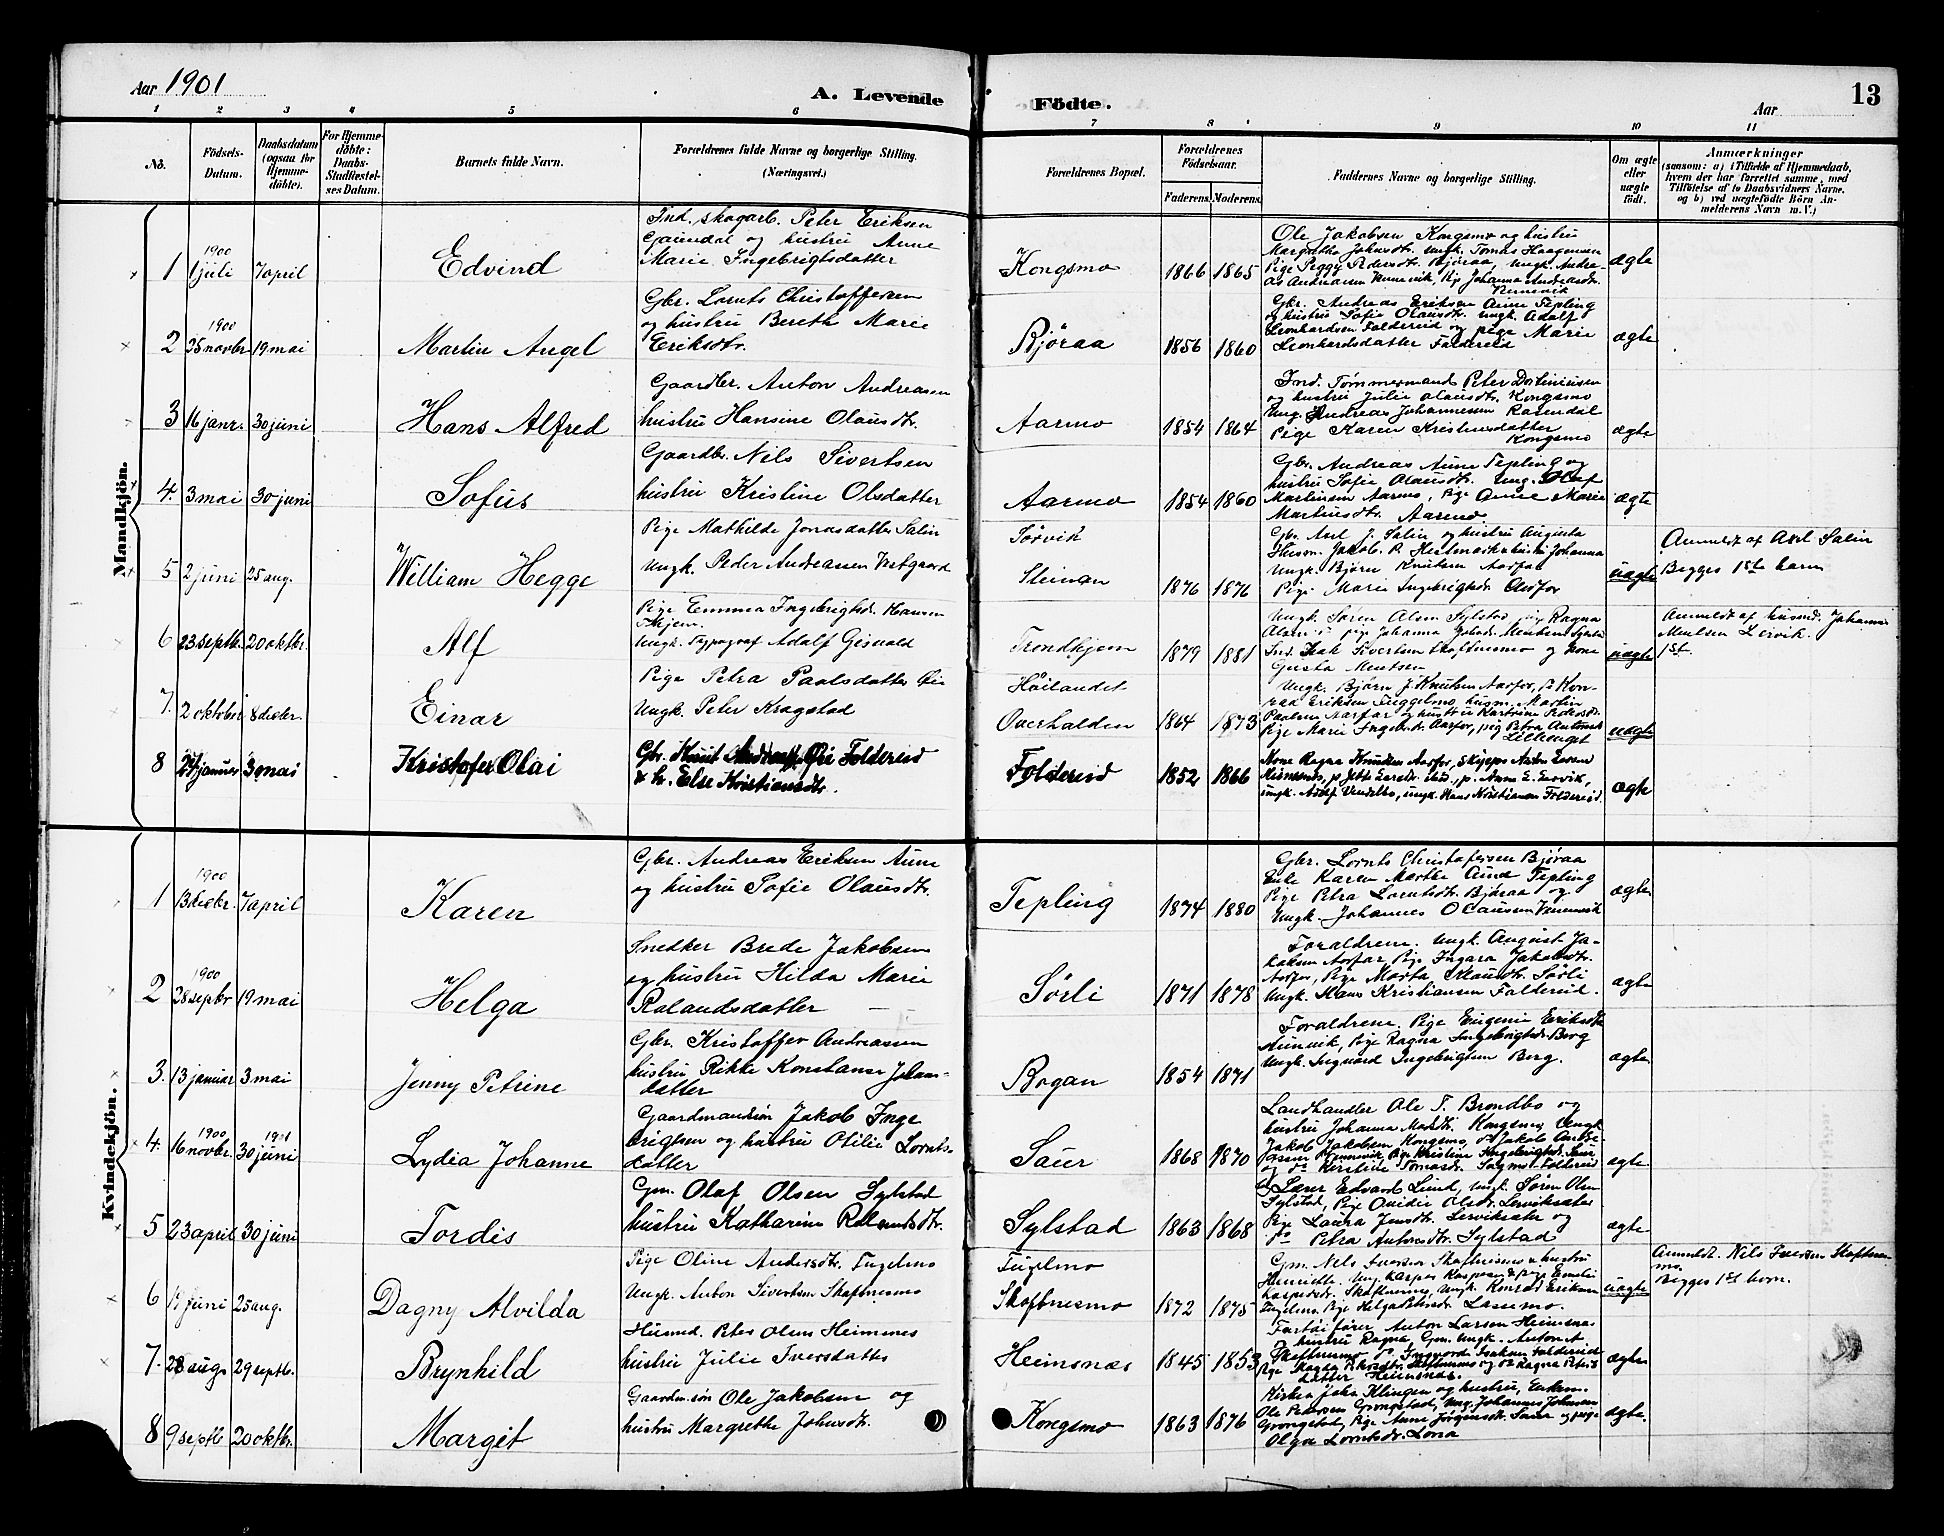 Aar 1901
A. Levende Födte.
Aar
13
1 2 3 4 5 6 7 8 9 10 11
No.
Födsels-Datum.
Daabsdatum (ogsaa for Hjemmedöbte).
For Hjemmedöbte: Daabs-Stadfæstelses Datum.
Barnets fulde Navn.
Forældrenes fulde Navne og borgerlige Stilling. (Næringsvei.)
Forældrenes Bopæl.
Forældrenes Födselsaar.
Faderens. Moderens.
Faddernes Navne og borgerlige Stilling.
Om ægte eller uægte födt.
Anmærkninger
(saasom: a) i Tilfælde af Hjemmedaab, hvem der har forrettet samme, med Tilföielse af to Daabsvidners Navne, og b) ved uægtefödte Börn Anmelderens Navn m. V.)
Mandkjön.
1 1900 1 juli 7 april Edvind
Ind. skogarb. Peter Eriksen
Gaundal og hustru Anne
Marie Ingebrigtsdatter
Kongsmo 1866 1865
Ole Jakobsen Kongsmo og hustru
Margrethe Johnsdtr. Ungk. Tomas Haagensen
Pige Peggy Pedersdtr. Bjøraa, Ungk. Andre-
as Andreasen Kunsvik, Pig. Johanna Andreasdtr.
Kunsvik
ægte
2 1900 25 novbr. 19 mai Martin Angel
Gbr. Lornts Christoffersen
og hustru Bereth Marie
Eriksdtr.
Bjøraa 1856 1860
Gbr. Andreas Eriksen Aune Tepling
og hustru Sofie Olausdtr. Ungk. Adolf
Leonhardsen Foldereid og pige Marie
Leonhardsdatter Foldereid
ægte
3 16 janr. 30 juni Hans Alfred
Gaardbr. Anton Andreasen
hustru Hansine Olausdtr.
Aarmo 1854 1864
Ind. Tømmermand Peter
og hustru Julie Olausdtr. Kongsmo
Ung. Andreas Johannesen Rosendal
Pige Karen Kristensdatter
Kongsmo
ægte
4. 3 mai 30 juni Sofus
Gaardbr. Nils Sivertsen
hustru Kristine Olsdatter
Aarmo 1854 1860
Gbr. Andreas Aune Tepling og
hustru Sofie Olausdtr. Ung. Olaf
Martinsen Aarmo, Pige Anne Marie
Martinsdtr. Aarmo
ægte
5 2 juni 25 aug. William Hegge
Pige Mathilde Jonasdatter Salin
Ungk. Peder Andreasen Vestgaard
Sørvik
Steinan 1876 1876
Gbr. Axel J. Salin og hustru Augusta
Husm. Jakob P. hustru Johanna
Ungk. Bjørn Knutsen Aarfor
Pige Marie Ingebrigtsdtr. Aarfor
uægte
Anmeldt af Axel Salin
Begges 1ste barn
6 23 septbr. 20 oktbr. Alf
Pige Emma Ingebrigtsdr. Hansen
Thjem
Ungk. Typograf Adolf Gisvold
Trondhjem 1879 1881
Ungk. Søren Olsen Sylstad, pig Ragna
Ind. Isak Sivertsen Skoftnesmo og Kone
Gusta Mentsen
uægte
Anmeldt af husmd. Johannes
Mentsen Lervik.
1st.
7. 2 oktober 8 decbr. Einar
Pige Petra Paalsdatter Øie
Ungk. Peter Kragstad
Høilandet
Overhalden 1864 1873
Ungk. Bjørn J. Knutsen Aarfor, Do Kon-
rad Eriksen Fuggelmo, husm. Martin
Paalsen Aarfor og hustru Katrine Pedersdr.
Pige Marie Ingebr.dr. Aarfor, pig Petra Antonsdr.
uægte
8 29 januar 3 mai Kristofer Olai
Gbr. Knut Andreass. Øie Foldereid
& h. Else Kristiansdtr.
Foldereid 1852 1866
Kone Ragna Knudsen Aarfor, Skipps Anton Larsen
Heimsnes, p. Jette Larsdr. ibid., p. Anna E. Lervik,
ungk. Adolf Vendelbo, ungk. Hans Kristiansen Foldereid.
ægte
Kvindekjön.
1 1900 13 decbr. 7 april Karen
Gbr. Andreas Eriksen Aune
og hustru Sofie Olausdtr.
Tepling 1874 1880
Gbr. Lornts Christofersen Bjøraa
Enke Karen Marthe Aune Tepling
Pige Petra Lorntsdtr. Bjøraa og
Ungk. Johannes Olausen
ægte
2 1900 28 septbr 19 mai Helga
Snedker Brede Jakobsen
og hustru Hilda Marie
Rolandsdatter
Sørli 1871 1878
Foraldrene. Ungk. August Ja-
kobsen Aarfor, Pige Ingara Jakobsdtr.
Aarfor, Pige Marta Olausdtr. Sørli
Ungk. Hans Kristiansen Foldereid.
ægte
3. 13 januar 3 mai Jenny Petrine
Gbr. Kristoffer Andreassen
hustru Rikke Konstanse Johan-
datter
Rogan 1854 1871
Foraldrene. Pige Eugenie Eriksdtr
Aunvik, Pige Ragna Ingebrigtsdr. Borg
Ungk. Ingvard Ingebrigtsen Borg.
ægte
4. 1900 16 novbr. 1901 30 juni Lydia Johanne
Gaardmandssøn Jakob Inge
brigtsen og hustru Otilie Lornts-
datter
Saur 1868 1870
Landhandler Ole T. Brøndbo og
hustru Johanna Kongsmo, Ungk
Jakob Jakobsen Kongsmo, Do Jakob Andre-
assen Kunsvik, Pige Kristine Ingebrigtsdr. Saur
og do Kirstine Tomasdr. Solumsmo Foldereid
ægte
5 23 april 30 juni Tordis
Gm. Olaf Olsen Sylstad
hustru Katharine Rolandsdtr.
Sylstad 1863 1868
Lærer Edvard Lund, Ungk. Søren Olsen
Sylstad, Pige Ovidie Olsdtr. Lerviksæter
Pige Laura Jensdtr. Lerviksæter og
do Petra Antonsdtr. Sylstad
ægte
6 17 juni 25 aug. Dagny Alvilda
Pige Oline Andersdtr. Fugelmo
Ungk. Anton Sivertsen Skoftnesmo
Fugelmo
Skoftnesmo 1872 1875
Gm. Nels Iversen Skoftnesmo & hustru
Henriette. Ung. Kasper Kasperen & pige Emelie
Kaspersdr. Skoftnesmo, Ungk. Konrad Eriksen
Fugelmo, Pige Helga Lassemo.
uægte
Anmeldt. Nils Iversen Skoftnes-
mo.
Begges 1st barn.
7. 28 aug 29 septb. Brynhild
Husmd. Peter Olsen Heimsnes
hustru Julie Iversdatter
Heimsnæs 1845 1853
Fartøifører Anton Larsen Heimsnæs
hustru Ragna, Gm. Ungk. Anton A.
Skoftnesmo, do Ingvard Isaksen Foldereid
Pige Magda Skoftnesmo og do Ragna Peters
datter Heimsnæs.
ægte
8 9 septb 20 oktbr. Margit
Gaardm.søn Ole Jakobsen og
hustru Margrethe Johnsdtr.
Kongsmo 1863 1876
Kirkes. John Klingen og hustru, Enkem.
Ole Petersen Grongstad, Ung. Johannes Johnsen
Grongstad, Pige Anne Jørgensdtr. Saur og pige
Olga Lorntsdr. Lona
ægte.